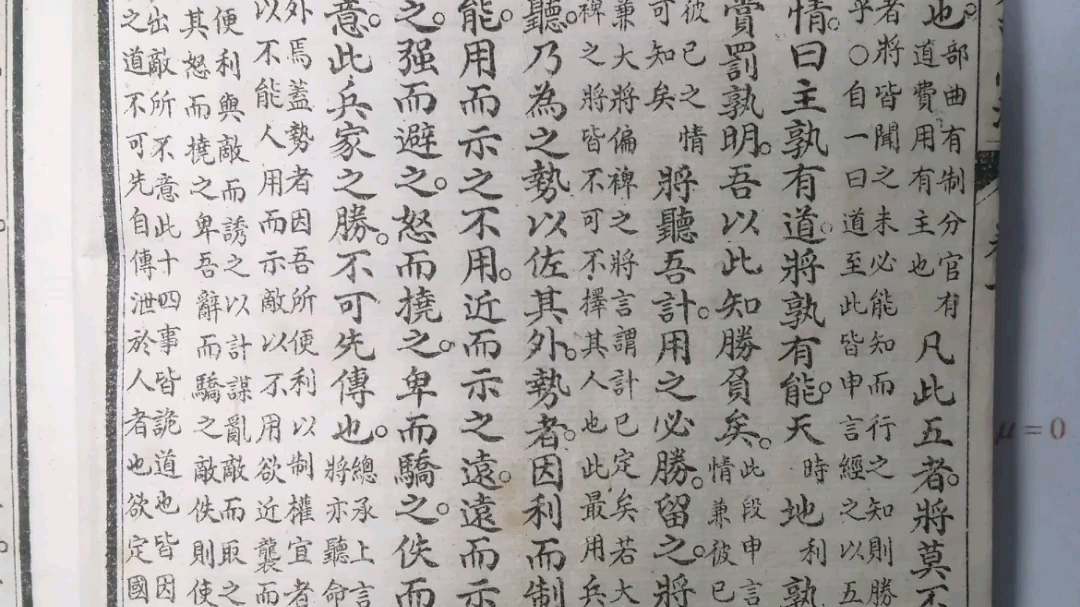 也。部曲有制分官有道費用有主也凡此五者。將莫不
者將皆聞之未必能知而行之知則勝
乎〇自一曰道至此皆申言經之以五
情。曰主孰有道。將孰有能。天時地利孰
賞罰孰明。吾以此知勝負矣。此段申言情兼彼已
彼已之情可知矣將聽吾計。用之必勝。留之。將
兼大將偏裨之將言謂計已定矣若大
裨之將皆不可不擇其人也此最用兵
聽。乃為之勢以佐其外。勢者。因利而制
能。用而示之不用。近而示之遠。遠而示
之。强而避之。怒而撓之。卑而驕之。佚而
意。此兵家之勝。不可先傳也。總承上言將亦聽命
外焉蓋勢者因吾所便利以制權宜者
以不能人用而示敵以不用欲近襲而
便利與敵而誘之以計謀亂敵而取之
其怒而撓之卑吾辭而驕之敵佚則使
出敵所不意此十四事皆詭道也皆因
之道不可先自傳泄於人者也欲定國
μ=0